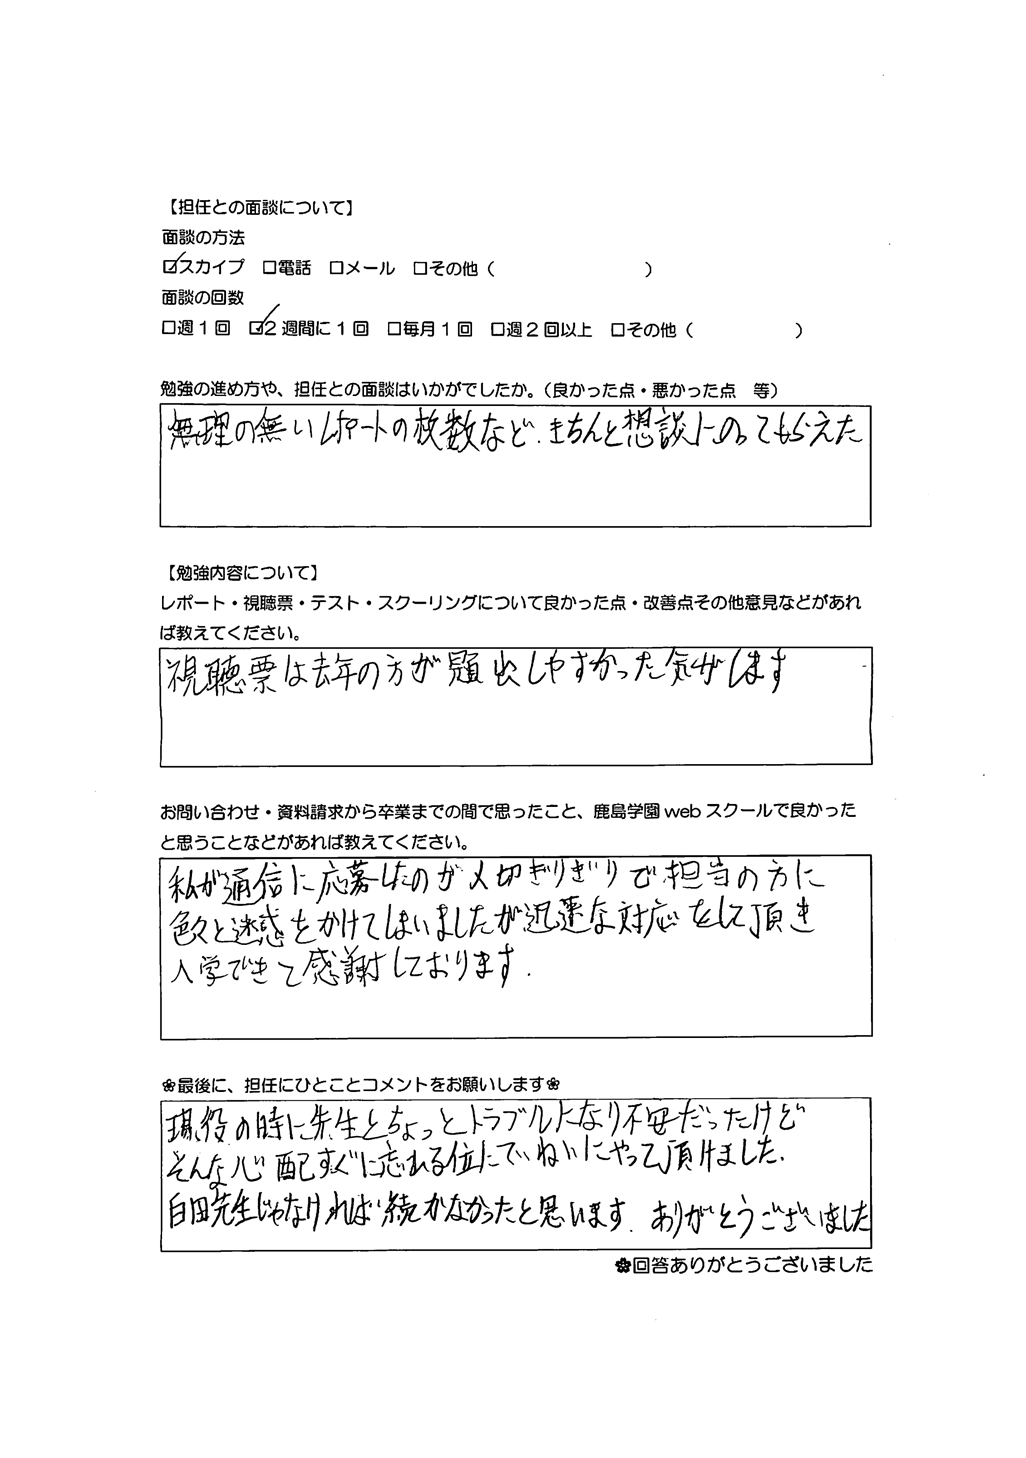 【担任との面談について】
面談の方法
☑スカイプ □電話 □メール □その他（　　　　　　　　　）
面談の回数
□週１回 ☑2週間に１回 □毎月１回 □週２回以上 □その他（　　　　　　）
勉強の進め方や、担任との面談はいかがでしたか。（良かった点・悪かった点　等）
無理の無いレポートの枚数など、きちんと想談にのってもらえた
【勉強内容について】
レポート・視聴票・テスト・スクーリングについて良かった点・改善点その他意見などがあれ
ば教えてください。
視聴票は去年の方が題出しやすかった気がします
お問い合わせ・資料請求から卒業までの間で思ったこと、鹿島学園 web スクールで良かった
と思うことなどがあれば教えてください。
私が通信に応募したのが〆切ぎりぎりで担当の方に
色々と迷惑をかけてしまいましたが迅速な対応をして頂き
入学できて感謝しております.
❀最後に、担任にひとことコメントをお願いします❀
現役の時に先生とちょっとトラブルになり不安だったけど
そんな心配すぐに忘れる位にていねいにやって頂けました.
白田先生じゃなければ続かなかったと思います. ありがとうございました
❀回答ありがとうございました